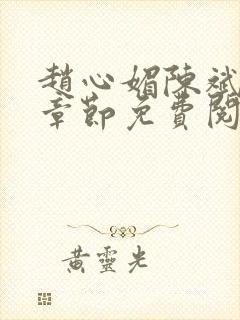 趙心媚陳斌
章節免費閱
黃靈光